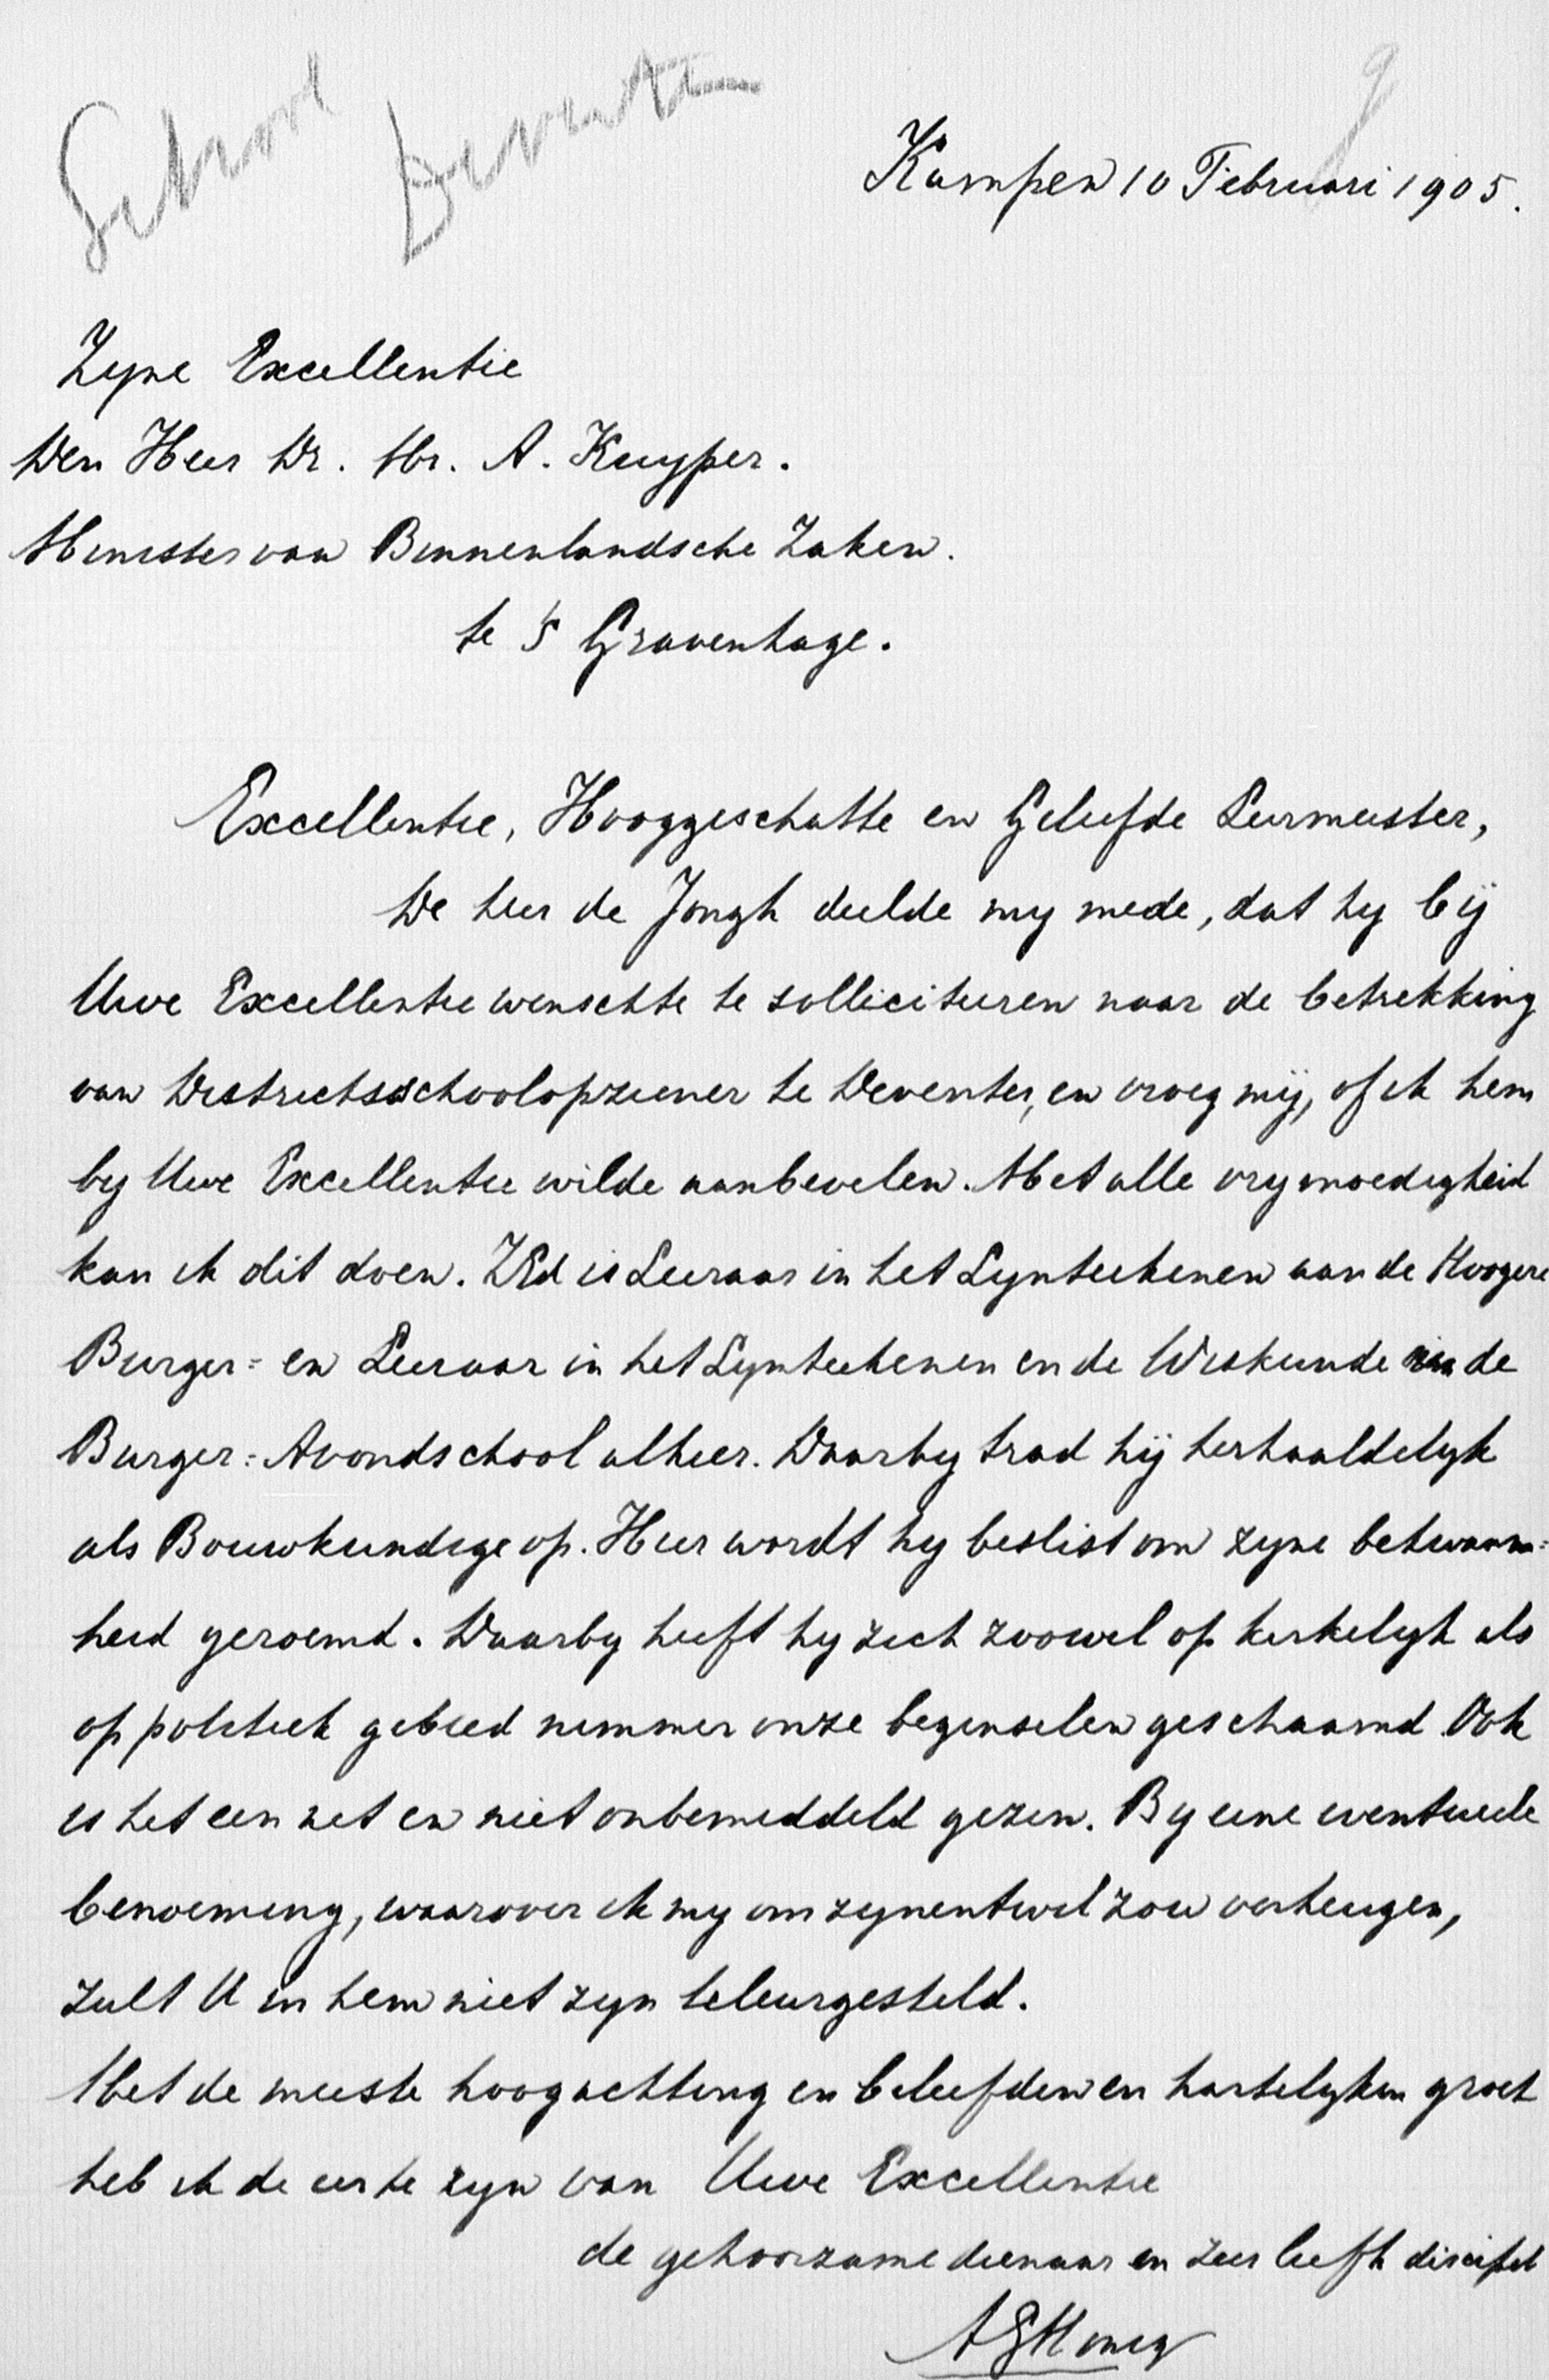 School Deventer
9
Kampen 10 Februari 1905.
Zyne Excellentie
Den Heer Dr. Mr. A. Kuyper.
Minister van Binnenlandsche Zaken.
te 's Gravenhage.
Excellentie, Hooggeschatte en Geliefde Leermeester,
De heer de Jongh deelde my mede, dat hy bij
Uwe Excellentie wenschte te solliciteeren naar de betrekking
van Districtsschoolopziener te Deventer, en vroeg mij, of ik hem
by Uwe Excellentie wilde aanbevelen. Met alle vrymoedigheid
kan ik dit doen. ZEd is Leeraar in het Lynteekenen aan de Hoogere
Burger= en Leeraar in het Lynteekenen en de Wiskunde aan de
Burger=Avondschool alhier. Daarby trad hij herhaaldelyk
als Bouwkundige op. Hier wordt hy beslist om zyne bekwaam=
heid geroemd. Daarby heeft hy zich zoowel op kerkelyk als
op politiek gebied nimmer onze beginselen geschaamd. Ook
is het een net en niet onbemiddeld gezin. By eene eventueele
benoeming, waarover ik my om zynentwil zou verheugen,
zult U in hem niet zyn teleurgesteld.
Met de meeste hoogachting en beleefden en hartelyken groet
heb ik de eer te zyn van Uwe Excellentie
de gehoorzame dienaar en zeer liefh discipel
AGHonig